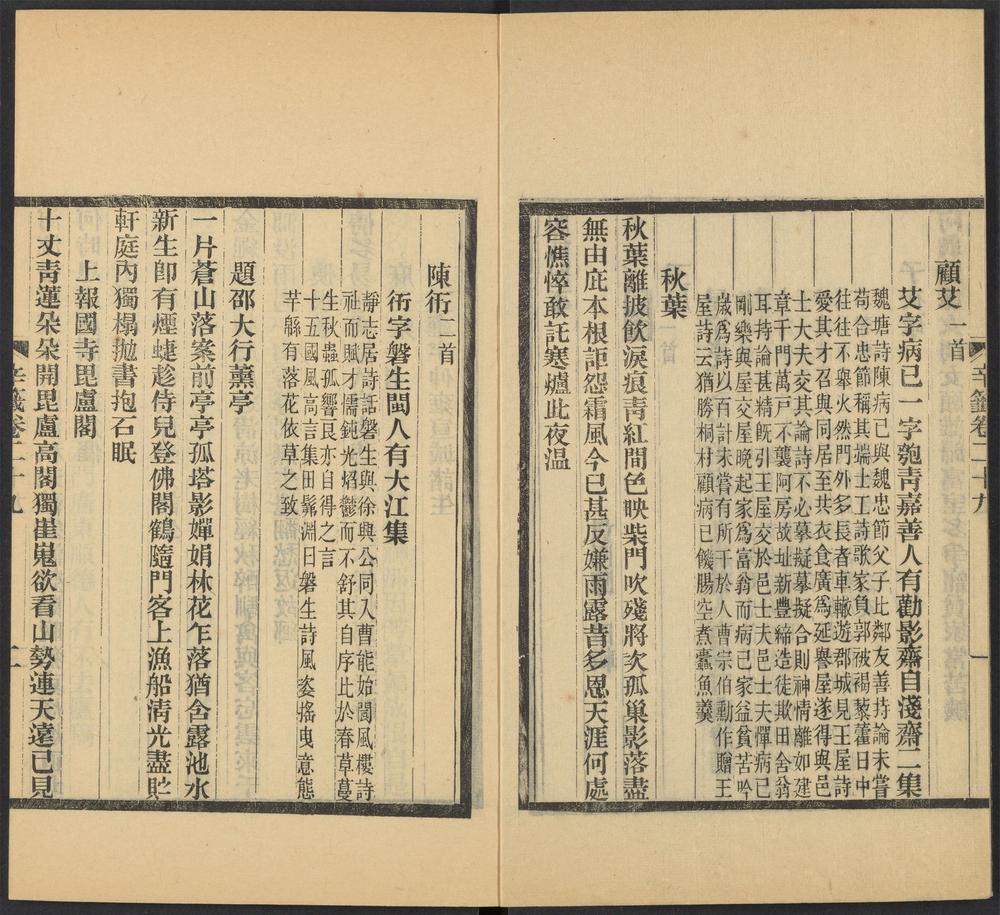 顧艾一首
艾字病已一字匏靑嘉善人有勸影齋自淺齋二集
魏塘詩陳病已與魏忠節父子比鄰友善持論未嘗
苟合忠節稱其端士工詩歌家負郭被褐藜藿日中
往往不舉火然門外多長者車轍遊郡城見王屋詩
愛其才召與同居至共衣食廣爲延譽屋遂得與邑
士大夫交其論詩不必摹擬摹擬合則神情離如建
章千門萬戸不襲阿房故址新豐締造徒欺田舍翁
耳持論甚精旣引王屋交於邑士夫邑士夫憚病已
剛樂與屋交屋晚起家爲富翁而病已家益貧苦吟
歲爲詩以百計未嘗有所干於人曹宗伯勳作贈王
屋詩云猶勝桐村顧病已饑腸空煮蠹魚羹
秋葉
秋葉離披飮淚痕靑紅間色映柴門吹殘將次孤巢影落盡
無由庇本根詎怨霜風今已甚反嫌雨露昔多恩天涯何處
容憔悴敢託寒爐此夜溫
辛籤卷二十九
一
陳衎二首
衎字磐生閩人有大江集
靜志居詩話磐生與徐興公同入曹能始閬風樓詩
社而賦才懦鈍光熖鬱而不舒其自序比於春草蔓
生秋蟲孤響良亦自得之言
十五國風高言集田髴淵曰磐生詩風姿搖曳意態
芊緜有落花依草之致
題邵大行薰亭
一片蒼山落案前亭亭孤塔影嬋娟林花乍落猶含露池水
新生卽有煙蜨趁侍兒登佛閣鶴隨門客上漁船淸光盡貯
軒庭內獨榻拋書抱石眠
上報國寺毘盧閣
十丈靑蓮朵朵開毘盧高閣獨崔嵬欲看山勢連天遠已見
辛籤卷二十九
二